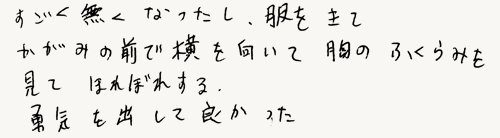 すごく無くなったし、服をきて
かがみの前で横を向いて 胸のふくらみを
見て ほれぼれする.
勇気を出して良かった